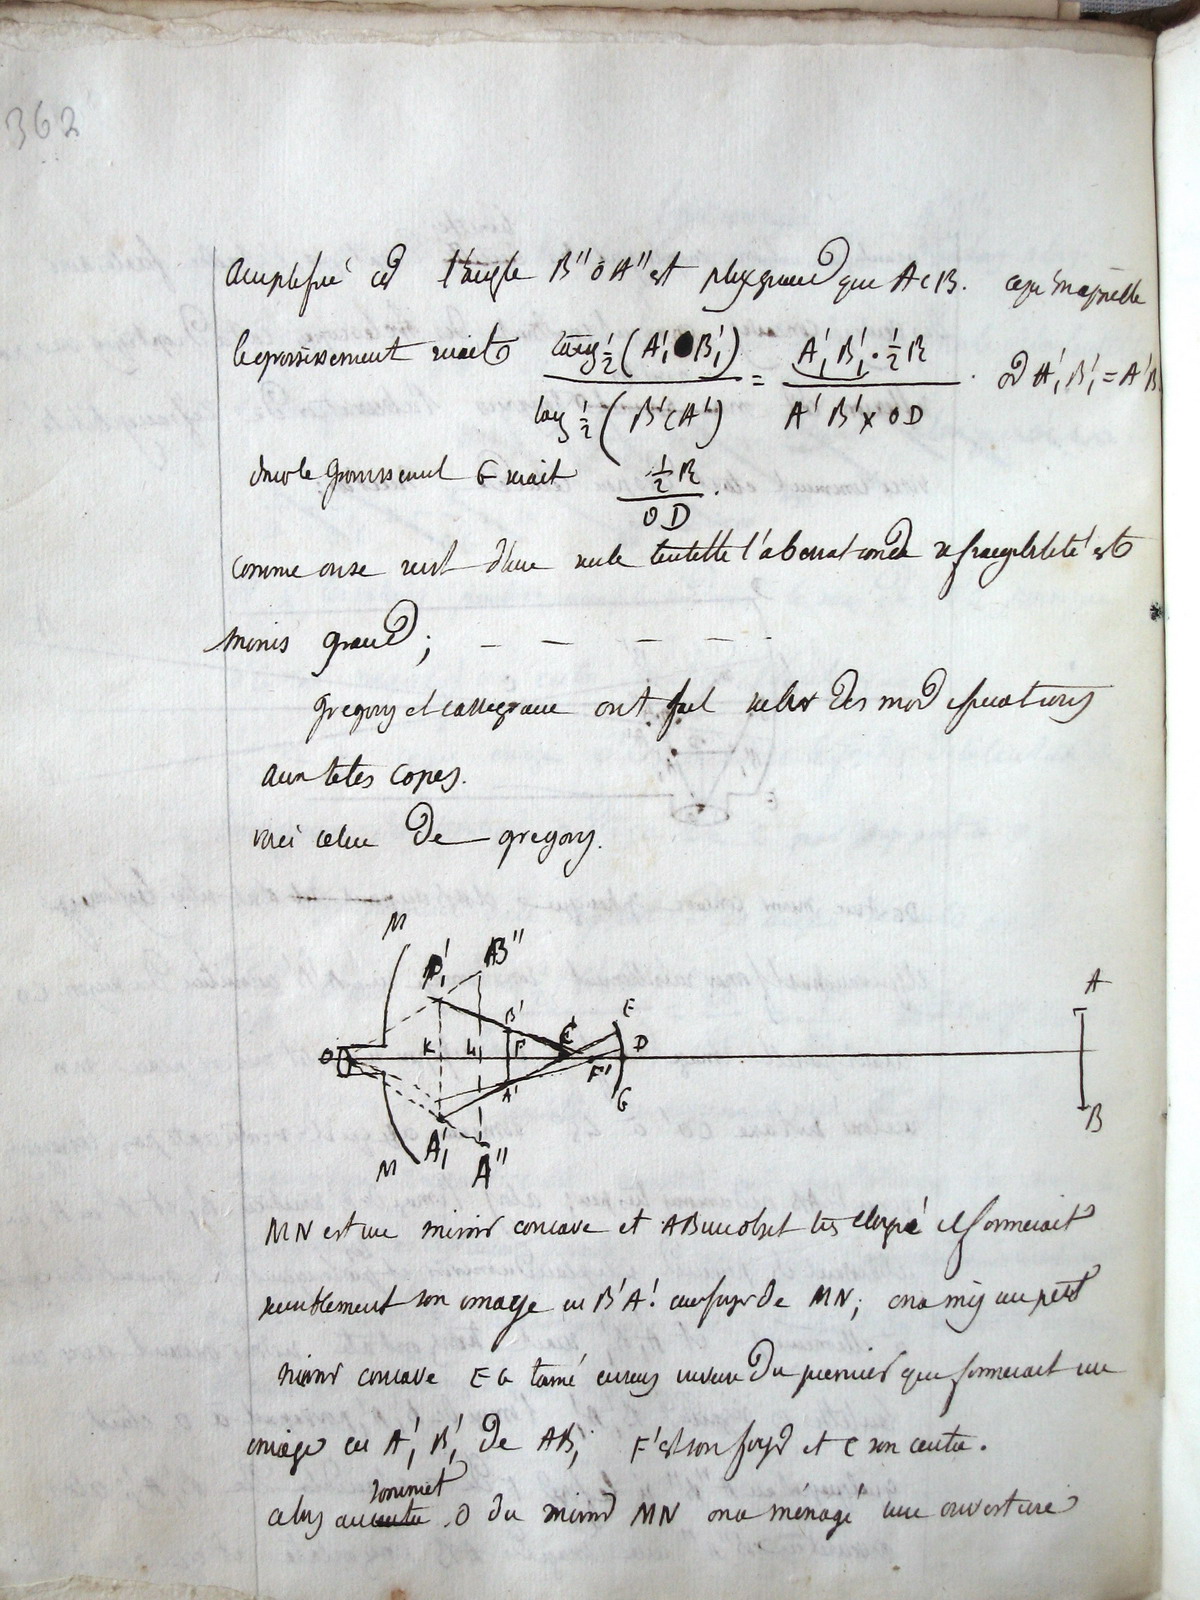 362
amplifié est l'angle B'' O A'' est plus grand que A c B. ce qu'on appelle
le grossissement serait tang ½ (A'₁ O B'₁) / tang ½ (B' C A') = A'₁ B'₁ · ½ R / A' B' × O D . or A'₁ B'₁ = A' B'
donc le grossissement G serait ½ R / O D .
comme on se sert d'une seule lentille l'aberration de refrangibilité est
moins grand ; — — — —
gregory et cassegrain ont fait subir des modifications
aux telescopes.
voici celui de gregory.
M
A B''
B'₁
A
B'
E
O K L F C F' D
A'
G
B
M A'₁
A''
MN est un miroir concave et AB un objet très éloigné il formerait
seulement son image en B'A' au foyer de MN; on a mis un petit
miroir concave E G tourné en sens inverse du premier qui formerait une
image en A'₁ B'₁ de AB; F' est son foyer et C son centre.
sommet
alors au centre O du miroir MN on a ménagé une ouverture